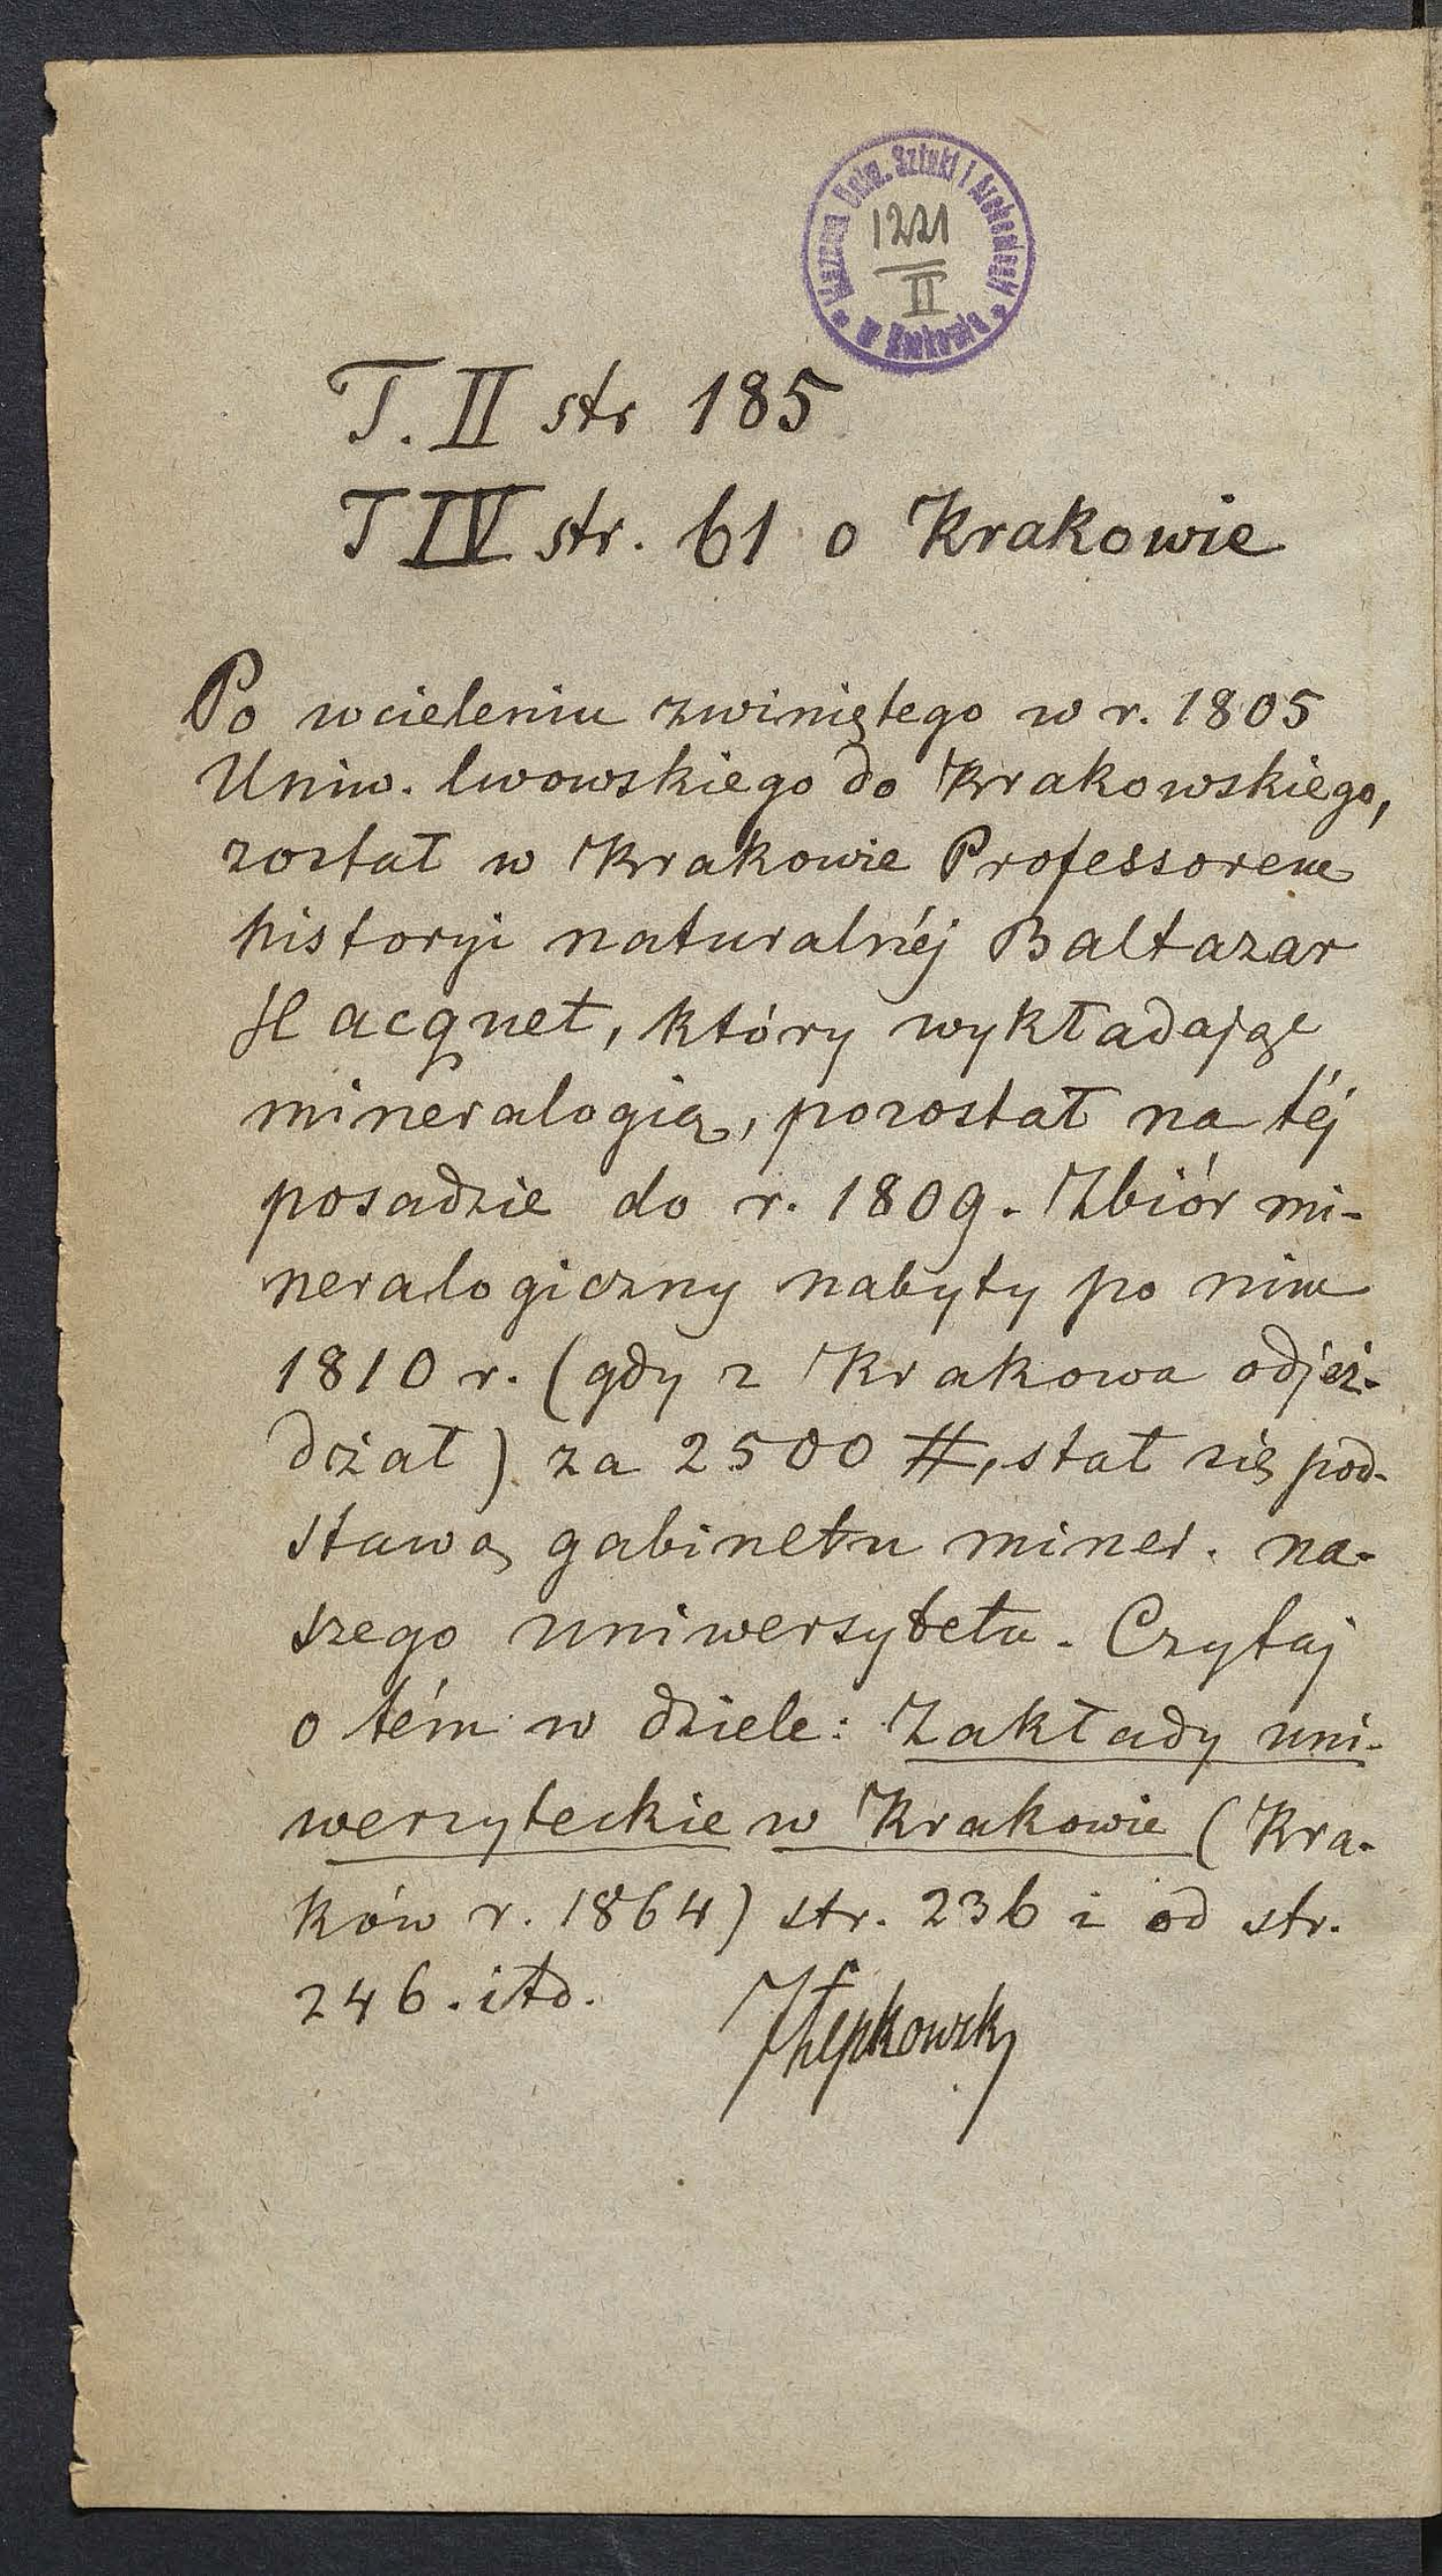 Muzeum Uniw. Sztuki i Archeologii
w Krakowie
1221
II
T. II str 185
T IV str. 61 o Krakowie
Po wcieleniu zwiniętego w r. 1805
Uniw. lwowskiego do Krakowskiego,
został w Krakowie Professorem
historyi naturalnéj Baltazar
Hacquet, który wykładając
mineralogią, pozostał na téj
posadzie do r. 1809. Zbiór mi-
neralogiczny nabyty po nim
1810 r. (gdy z Krakowa odjeż-
dżał) za 2500 #, stał się pod-
stawą gabinetu miner. na-
szego uniwersytetu. Czytaj
o tém w dziele: Zakłady uni-
wersyteckie w Krakowie (Kra-
ków r. 1864) str. 236 i od str.
246. itd.
JŁepkowski